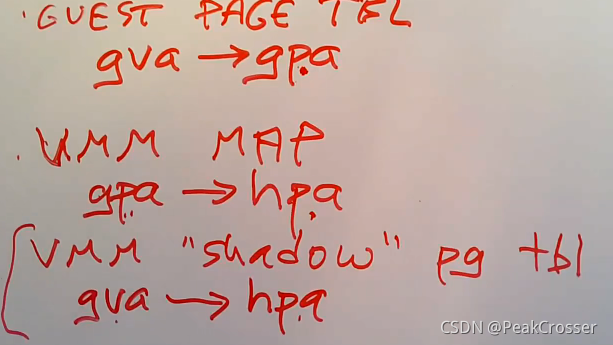 · GUEST PAGE TBL
gva → gpa
· VMM MAP
gpa → hpa
VMM "shadow" pg tbl
gva → hpa
CSDN @PeakCrosser